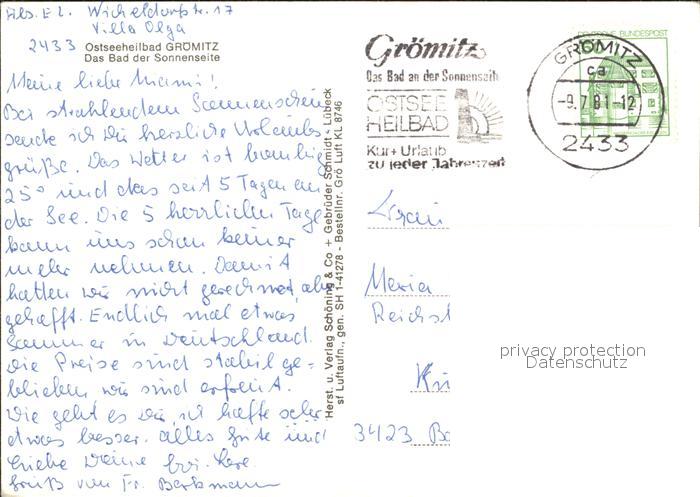 Abs. E.L. Wicheldorfstr. 17
Villa Olga
2433 Ostseeheilbad GRÖMITZ
Das Bad der Sonnenseite
Meine liebe Mami!
Bei strahlendem Sonnenschein
sende ich Dir herzliche Urlaubs-
grüße. Das Wetter ist bombig
25° und das seit 5 Tagen an
der See. Die 5 herrlichen Tage
kann uns schon keiner
mehr nehmen. Damit
hatten wir nicht gerechnet, aber
gehofft. Endlich mal etwas
Sommer in Deutschland.
Die Preise sind stabil ge-
blieben, wir sind erfreut.
Wie geht es Dir, ich hoffe sehr
etwas besser. Alles Gute und
Liebe Deine
Gruß von Fr. Berkmann
Herst. u. Verlag Schöning & Co + Gebrüder Schmidt - Lübeck
sf Luftaufn., gen. SH 1-41278 - Bestellnr. Grö Luft KL 8746
Grömitz
Das Bad an der Sonnenseite
OSTSEE
HEILBAD
Kur + Urlaub
zu jeder Jahreszeit
GRÖMITZ
ca
-9.7.81-12
2433
DEUTSCHE BUNDESPOST
Frau
Maria
Reichst
3423 Ba
privacy protection
Datenschutz